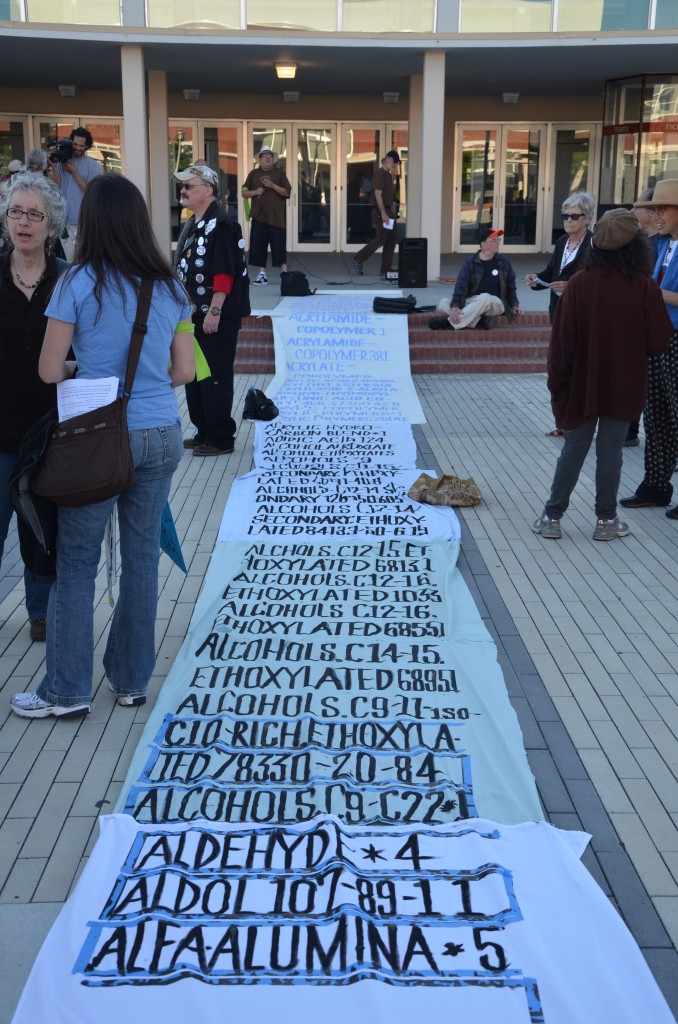 ACRYLAMIDE-
COPOLYMER 1
ACRYLAMIDE-
COPOLYMER 381
ACRYLATE
ACRYLIC HYDRO-
CARBON BLEND*1
ADIPIC ACID 124
ALCOHOL ALKOXYLATE
ALCOHOL ETHOXYLATES
ALCOHOLS *9
SECONDARY, ETHOXY-
ALCOHOLS C12-14
ONDARY
ALCOHOLS. C12-14
SECONDARY. ETHOXY-
LATED 84133-50-6-19
ALCHOLS. C12-15 ET-
HOXYLATED 68131
ALCOHOLS. C12-16.
ETHOXYLATED 1033
ALCOHOLS. C12-16.
ETHOXYLATED 68551
ALCOHOLS. C14-15.
ETHOXYLATED 68951
ALCOHOLS. C9-11-ISO-
C10-RICH. ETHOXYLA-
TED 78330-20-84
ALCOHOLS. C9-C22*
ALDEHYDE * 4
ALDOL 107-89-1 1
ALFA-ALUMINA * 5